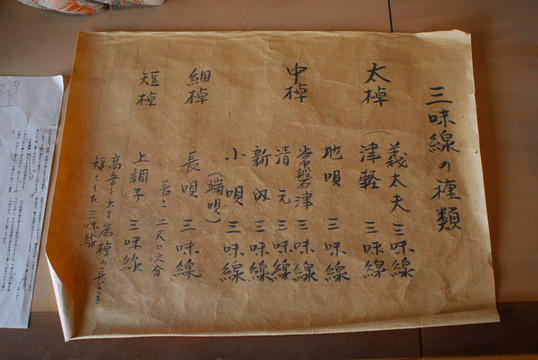 三味線の種類
太棹
義太夫 三味線
津軽 三味線
中棹
地唄 三味線
常磐津 三味線
清元 三味線
新内 三味線
小唄 三味線
(端唄)
細棹
長唄 三味線
長さ 二尺〇六分
短棹
上調子 三味線
高音を出す為棹の長さを
短くした三味線